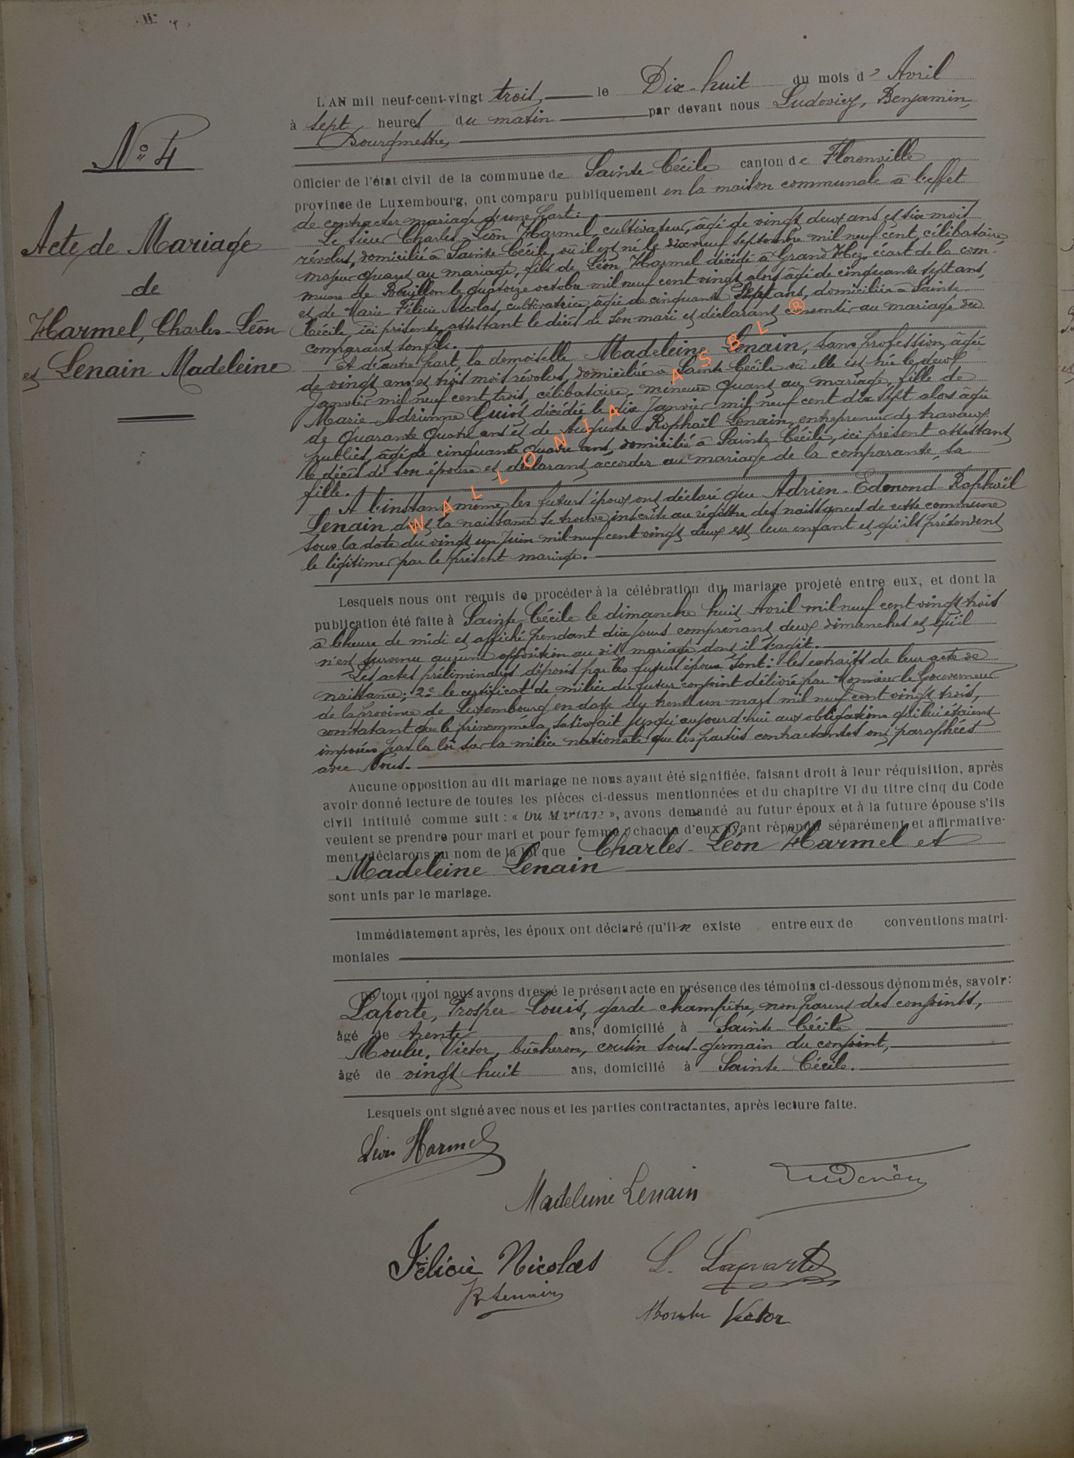 N° 4
Acte de Mariage
de
Harmel, Charles-Léon
et Lenain Madeleine
L'AN mil neuf-cent-vingt trois le Dix-huit du mois d' Avril
à sept heures du matin par devant nous Ludovicy, Benjamin
Bourgmestre,
Officier de l'état civil de la commune de Sainte-Cécile canton de Florenville
province de Luxembourg, ont comparu publiquement en la maison communale à l'effet
de contracter mariage d'une part:
Le sieur Charles-Léon Harmel, cultivateur, âgé de vingt deux ans et six mois
révolus, domicilié à Sainte-Cécile, où il est né le dix neuf septembre mil neuf cent, célibataire,
majeur quant au mariage, fils de Léon Harmel décédé à Grand-Hez, écart de la com-
mune de Bouillon le quatorze octobre mil neuf cent vingt alors âgé de cinquante sept ans,
et de Marie Félicie Nicolas, cultivatrice, âgée de cinquante sept ans, domiciliée à Sainte-
Cécile, ici présente, attestant le décès de son mari et déclarant consentir au mariage du
comparant son fils.
Et d'autre part, la demoiselle Madeleine Lenain, sans profession, âgée
de vingt ans et trois mois révolus, domiciliée à Sainte Cécile où elle est née le deux
Janvier mil neuf cent trois, célibataire, mineure quant au mariage, fille de
Marie Adrienne Guiot décédée le dix Janvier mil neuf cent dix sept alors âgée
de quarante quatre ans et de Auguste Raphaël Lenain, entrepreneur de travaux
publics, âgé de cinquante quatre ans, domicilié à Sainte Cécile, ici présent attestant
le décès de son épouse et déclarant accorder au mariage de la comparante, sa
fille.
A l'instant même les futurs époux ont déclaré que Adrien-Edmond Raphaël
Lenain dont la naissance se trouve inscrite au registre des naissances de cette commune
sous la date du vingt un Juin mil neuf cent vingt deux est leur enfant et qu'ils prétendent
le légitimer par le présent mariage.
WALLONIA ASBL ®
Lesquels nous ont requis de procéder à la célébration du mariage projeté entre eux, et dont la
publication été faite à Sainte Cécile le dimanche huit Avril mil neuf cent vingt trois
à l'heure de midi et affiché pendant dix jours comprenant deux dimanches et qu'il
n'est survenu aucune opposition au dit mariage dont il s'agit.
Les actes préliminaires déposés par les futurs époux sont: les extraits de leur acte de
naissance; 2° le certificat de milice du futur conjoint délivré par Monsieur le Gouverneur
de la province de Luxembourg en date du trente un mars mil neuf cent vingt trois,
constatant que le prénommé a satisfait jusqu'aujourd'hui aux obligations qui lui étaient
imposées par la loi sur la milice nationale que les parties contractantes ont paraphées
avec Nous.
Aucune opposition au dit mariage ne nous ayant été signifiée, faisant droit à leur réquisition, après
avoir donné lecture de toutes les pièces ci-dessus mentionnées et du chapitre VI du titre cinq du Code
civil intitulé comme suit: « Du Mariage », avons demandé au futur époux et à la future épouse s'ils
veulent se prendre pour mari et pour femme; chacun d'eux ayant répondu séparément et affirmative-
ment, déclarons au nom de la loi que Charles-Léon Harmel et
Madeleine Lenain
sont unis par le mariage.
Immédiatement après, les époux ont déclaré qu'il n existe entre eux de conventions matri-
moniales
De tout quoi nous avons dressé le présent acte en présence des témoins ci-dessous dénommés, savoir:
Laporte, Prosper-Louis, garde champêtre, non parent des conjoints,
âgé de trente ans, domicilié à Sainte Cécile
Moulu, Victor, bûcheron, cousin sous-germain du conjoint,
âgé de vingt huit ans, domicilié à Sainte-Cécile.
Lesquels ont signé avec nous et les parties contractantes, après lecture faite.
Léon Harmel
Madeleine Lenain
Félicie Nicolas
L. Laporte
R Lenain
Moulu Victor